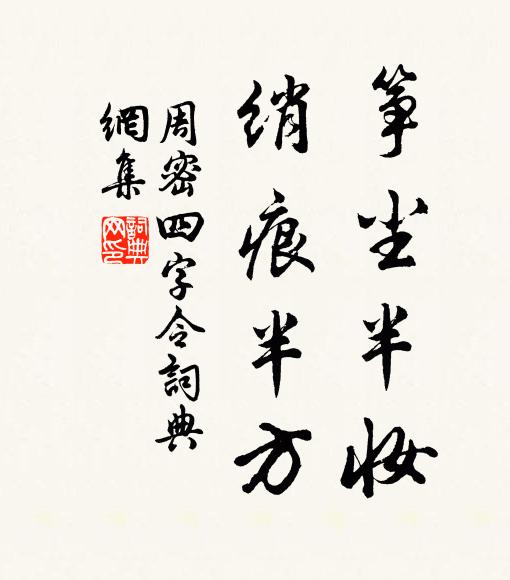 筝尘半妆
绡痕半方
周密四字令詞典
網集
詞典网印